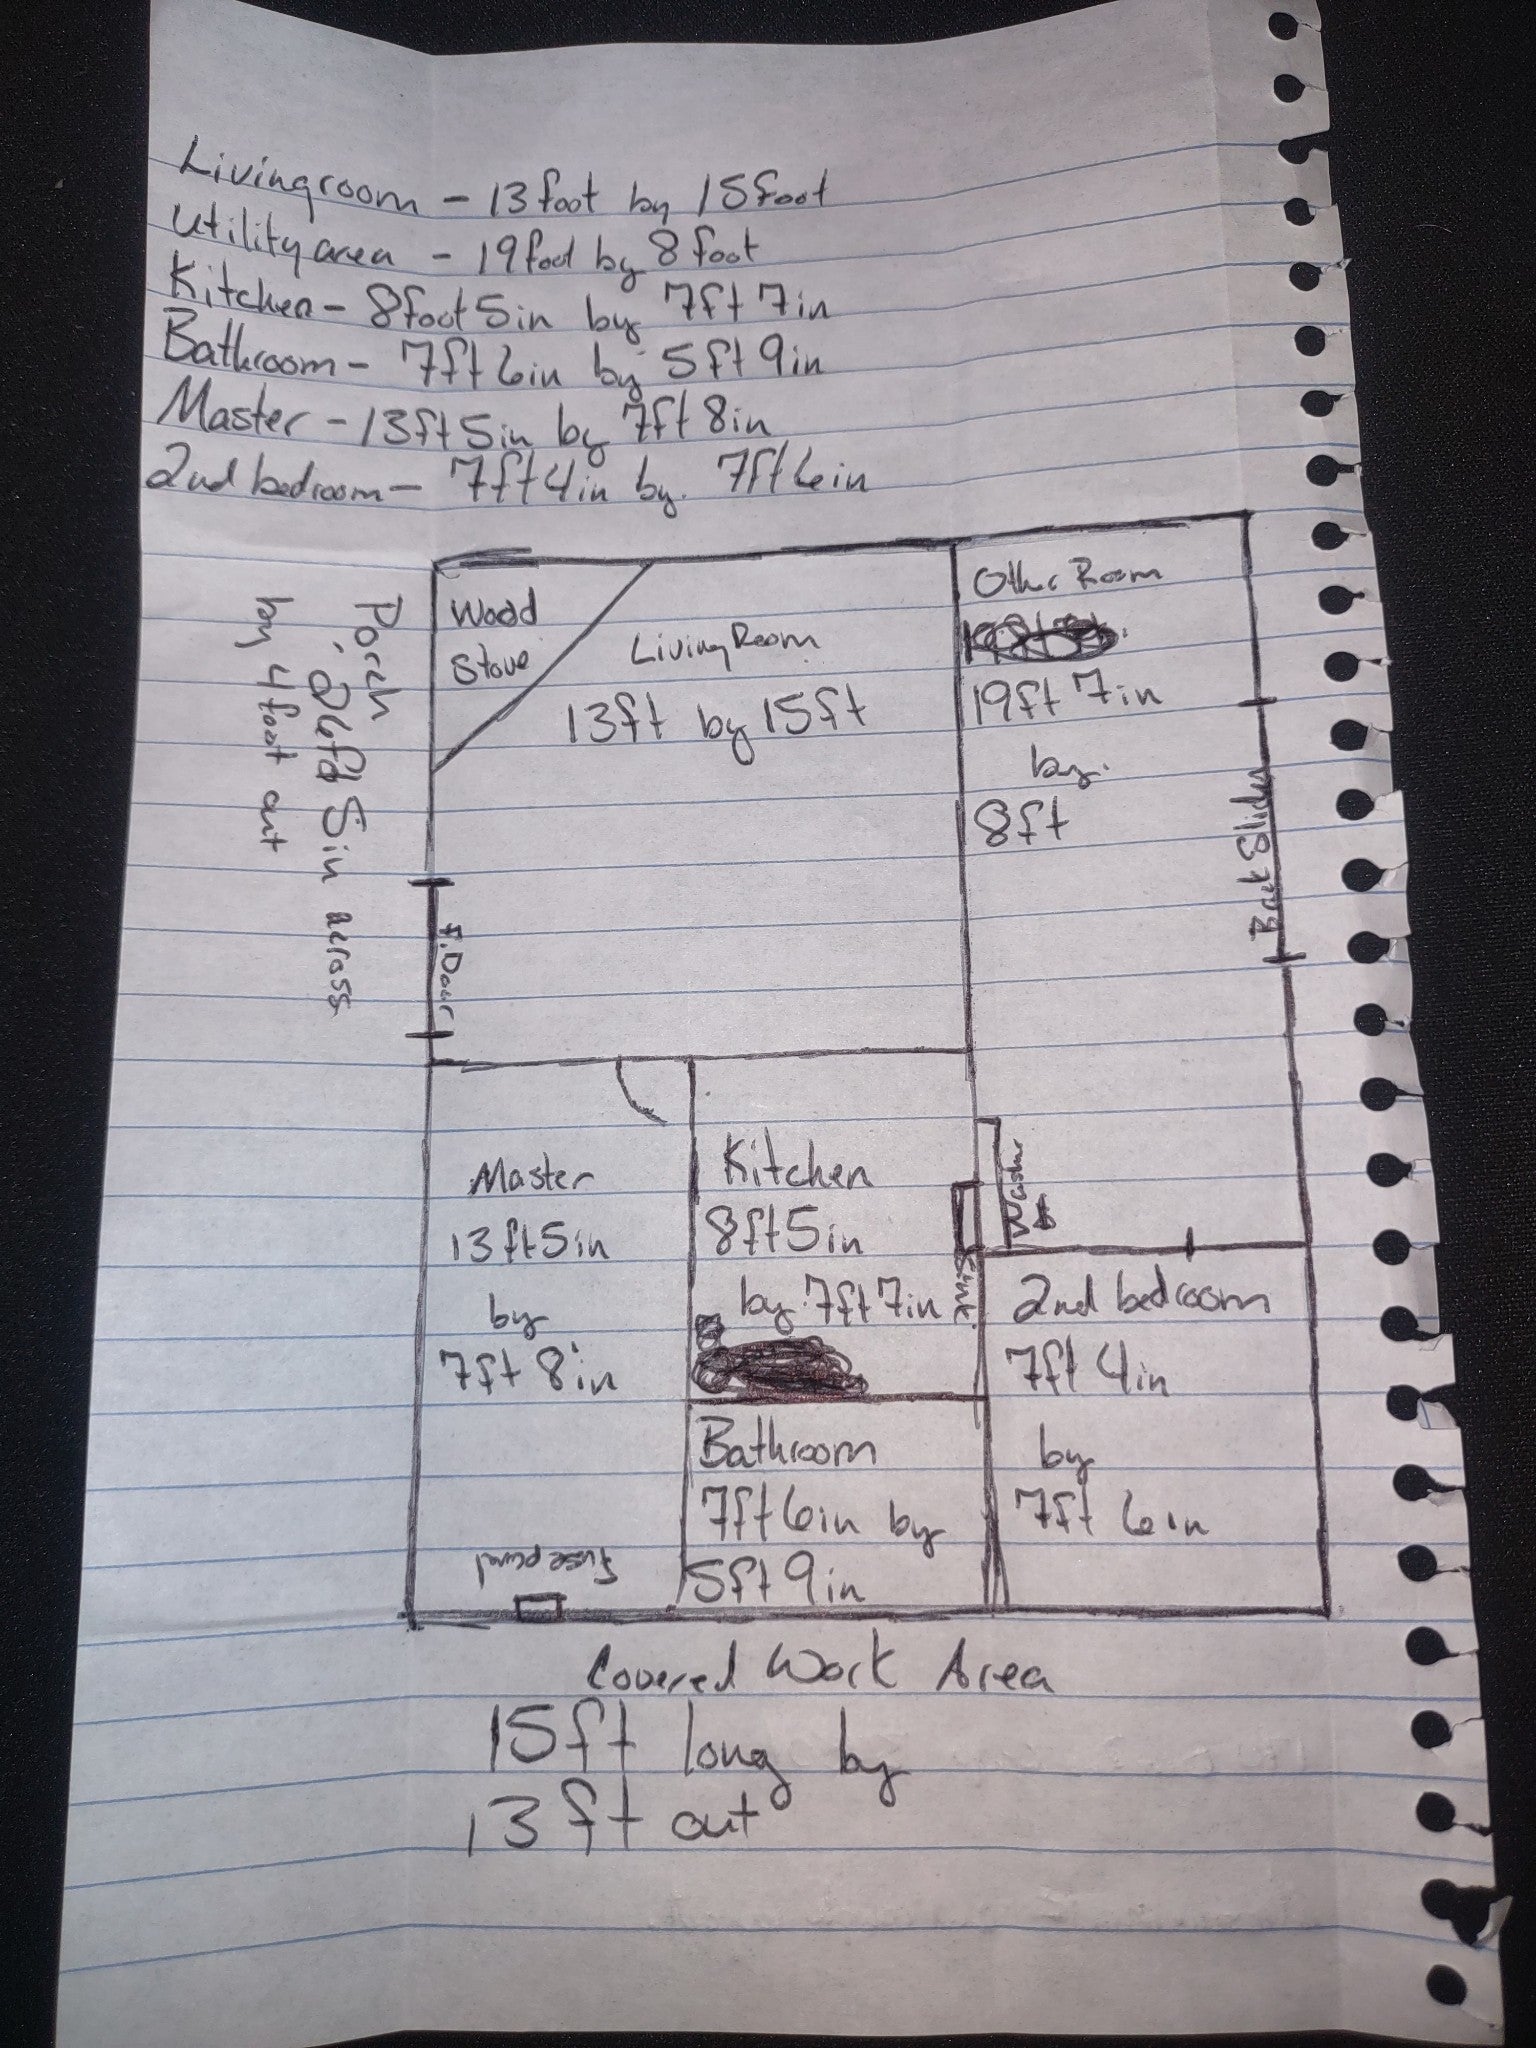 Livingroom - 13foot by 15foot
Utility area - 19foot by 8foot
Kitchen - 8foot 5in by 7ft 7in
Bathroom - 7ft 6in by 5ft 9in
Master - 13ft 5in by 7ft 8in
2nd bedroom - 7ft 4in by. 7ft 6in
Porch
26ft 5in across
by 4foot out
Wood
Stove
Living Room
13ft by 15ft
Other Room
19ft 7in
by.
8ft
Back Slider
F. Door
Master
13ft5in
by
7ft 8in
Kitchen
8ft5in
by. 7ft 7in
Sink
Washer
2nd bedroom
7ft 4in
by
7ft 6in
Bathroom
7ft 6in by
5ft 9in
fuse panel
Covered Work Area
15ft long by
13ft out